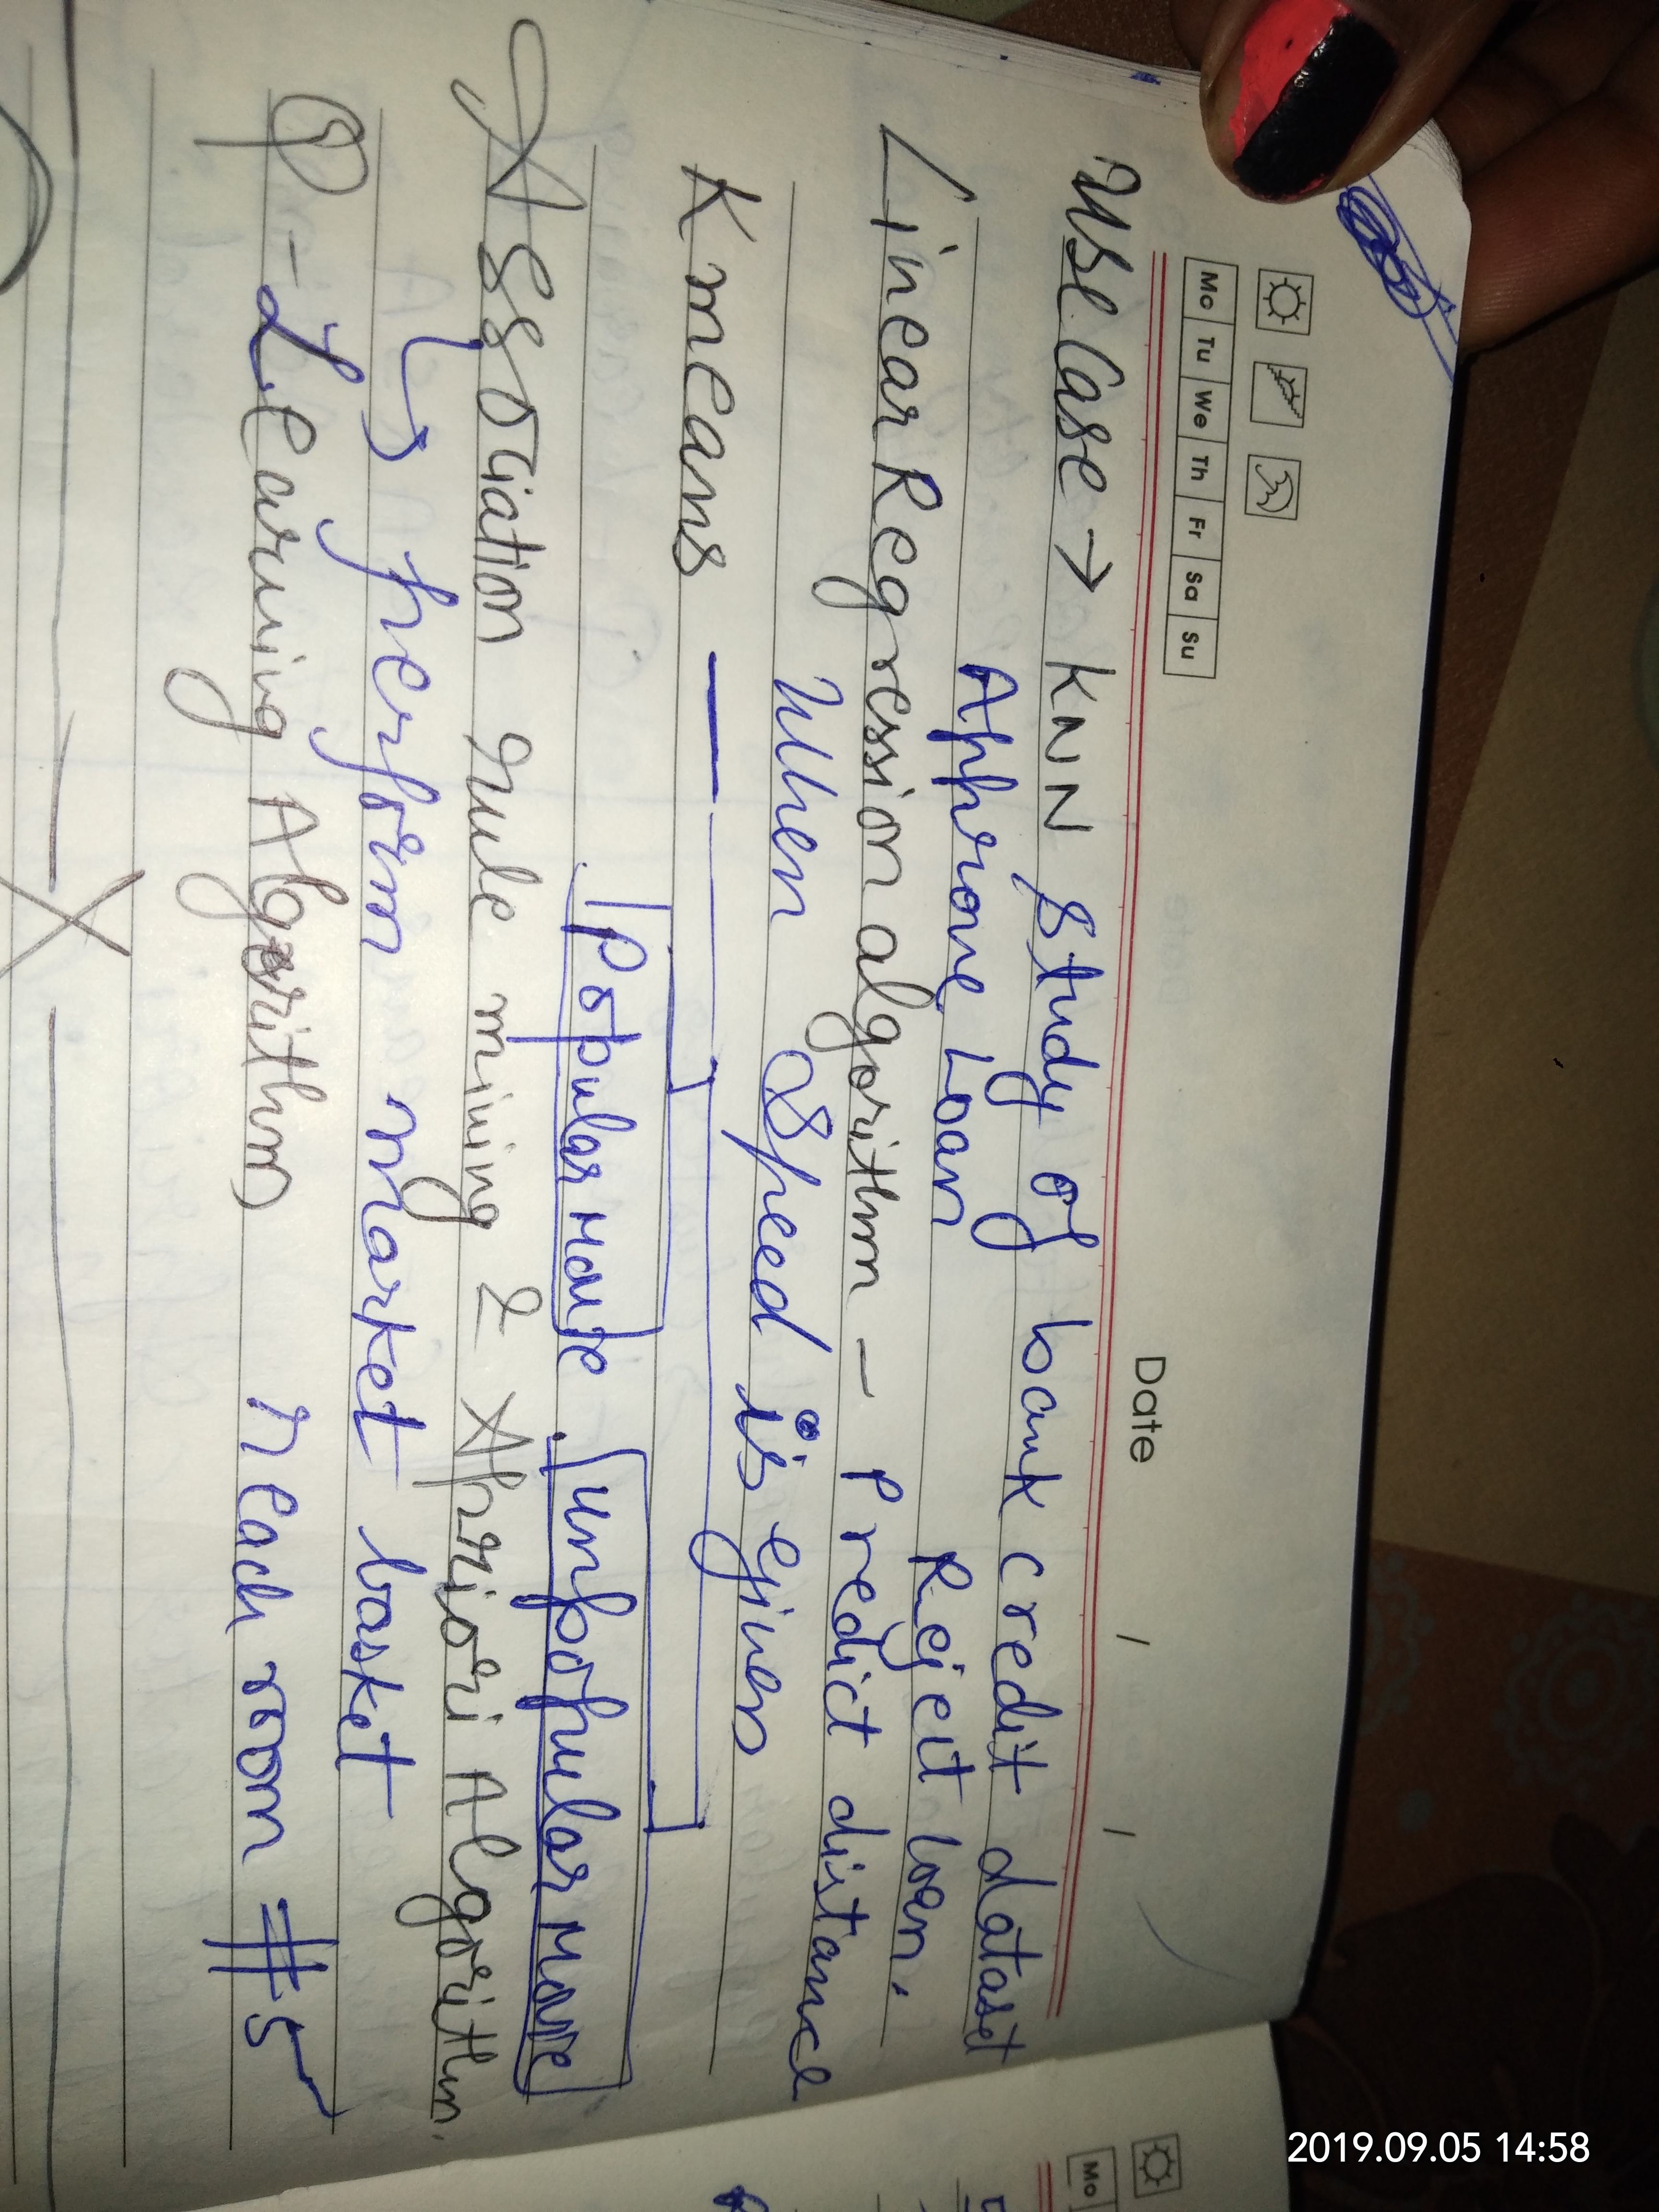 Mo Tu We Th Fr Sa Su
Date / /
Use Case → KNN Study of bank credit dataset
Approve Loan Reject loan.
Linear Regression algorithm - Predict distance
when Speed is given
K means —
Popular Movie Unpopular Movie
Association rule mining & Apriori Algorithm.
↳ perform market basket
Q-Learning Algorithm reach room #5
Mo
2019.09.05 14:58